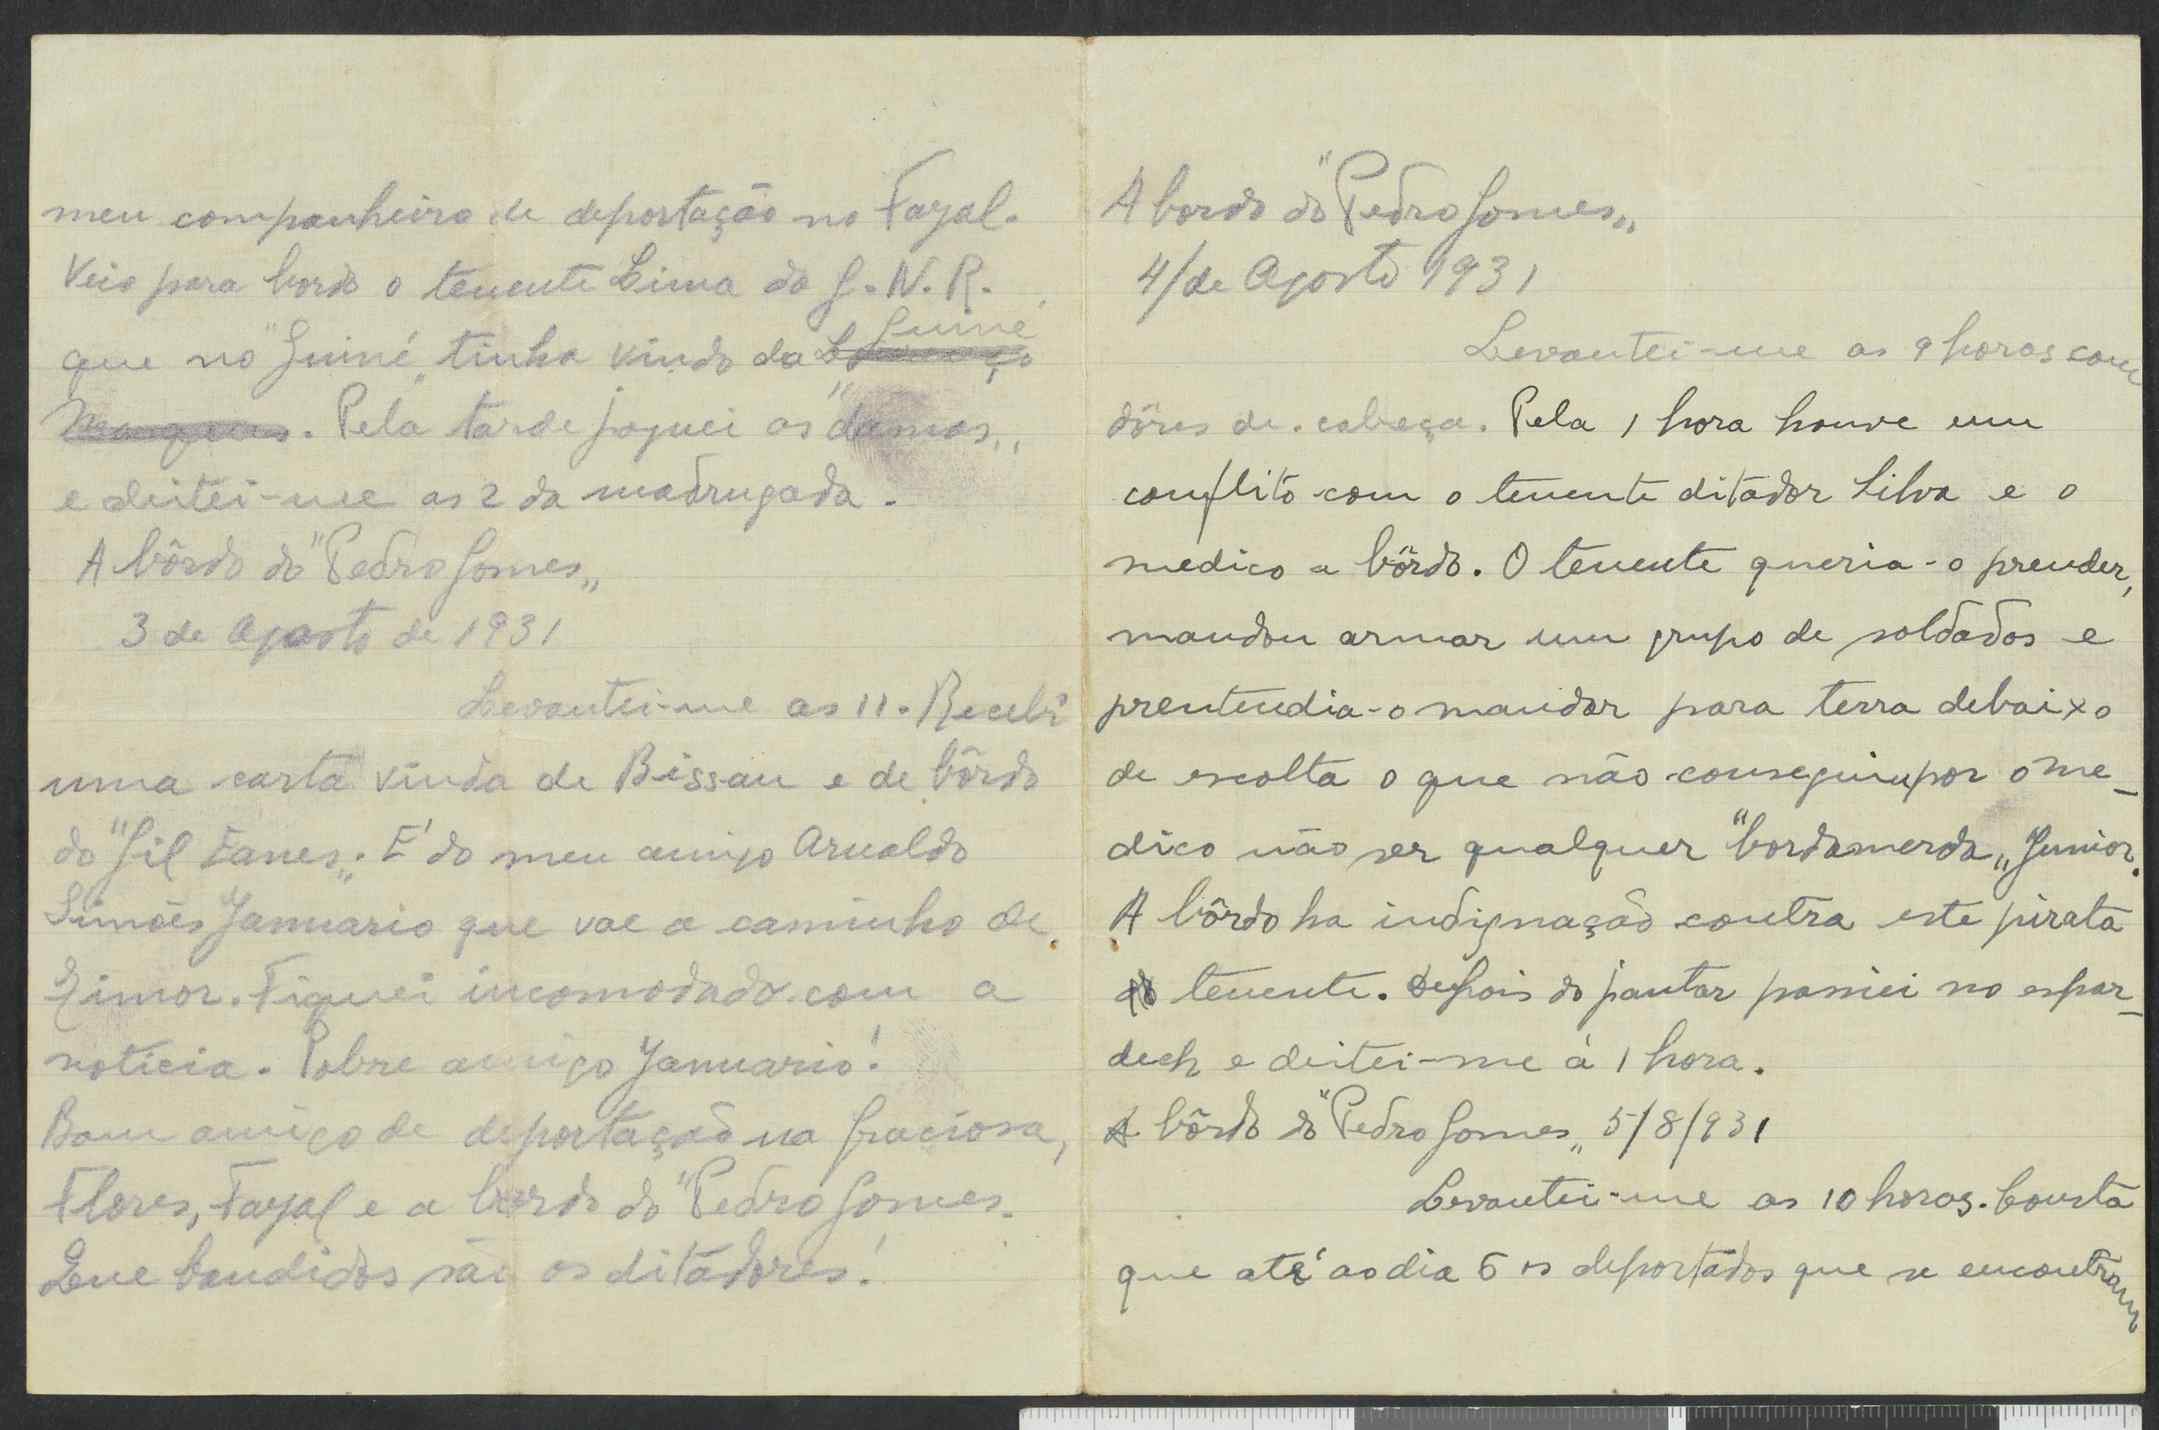 meu companheiro de deportação no Fayal.
Veio para bordo o tenente Lima da G. N. R.
que no "Guiné„ tinha vindo da Guiné
. Pela tarde joguei as "damas„
e deitei-me as 2 da madrugada.
A bôrdo do "Pedro Gomes„
3 de Agosto de 1931
Levantei-me as 11. Recebi
uma carta vinda de Bissau e de bôrdo
do "Gil Eanes„. E' do meu amigo Arnaldo
Simões Januario que vae a caminho de
Timor. Fiquei incomodado com a
noticia. Pobre amigo Januario!
Bom amigo de deportação na Graciosa,
Flores, Fayal e a bordo do "Pedro Gomes.
Que bandidos são os ditadores!
A bordo do "Pedro Gomes„
4/de Agosto 1931
Levantei-me as 9 horas com
dôres de cabeça. Pela 1 hora houve um
conflito com o tenente ditador Silva e o
medico a bôrdo. O tenente queria-o prender,
mandou armar um grupo de soldados e
prentendia-o mandar para terra debaixo
de escolta o que não conseguiu por o me-
dico não ser qualquer "bordamerda„ Junior.
A bôrdo ha indignação contra este pirata
do tenente. Depois do jantar passei no espar-
deck e deitei-me á 1 hora.
A bôrdo do "Pedro Gomes„ 5/8/931
Levantei-me as 10 horas. Consta
que até ao dia 6 os deportados que se encontram